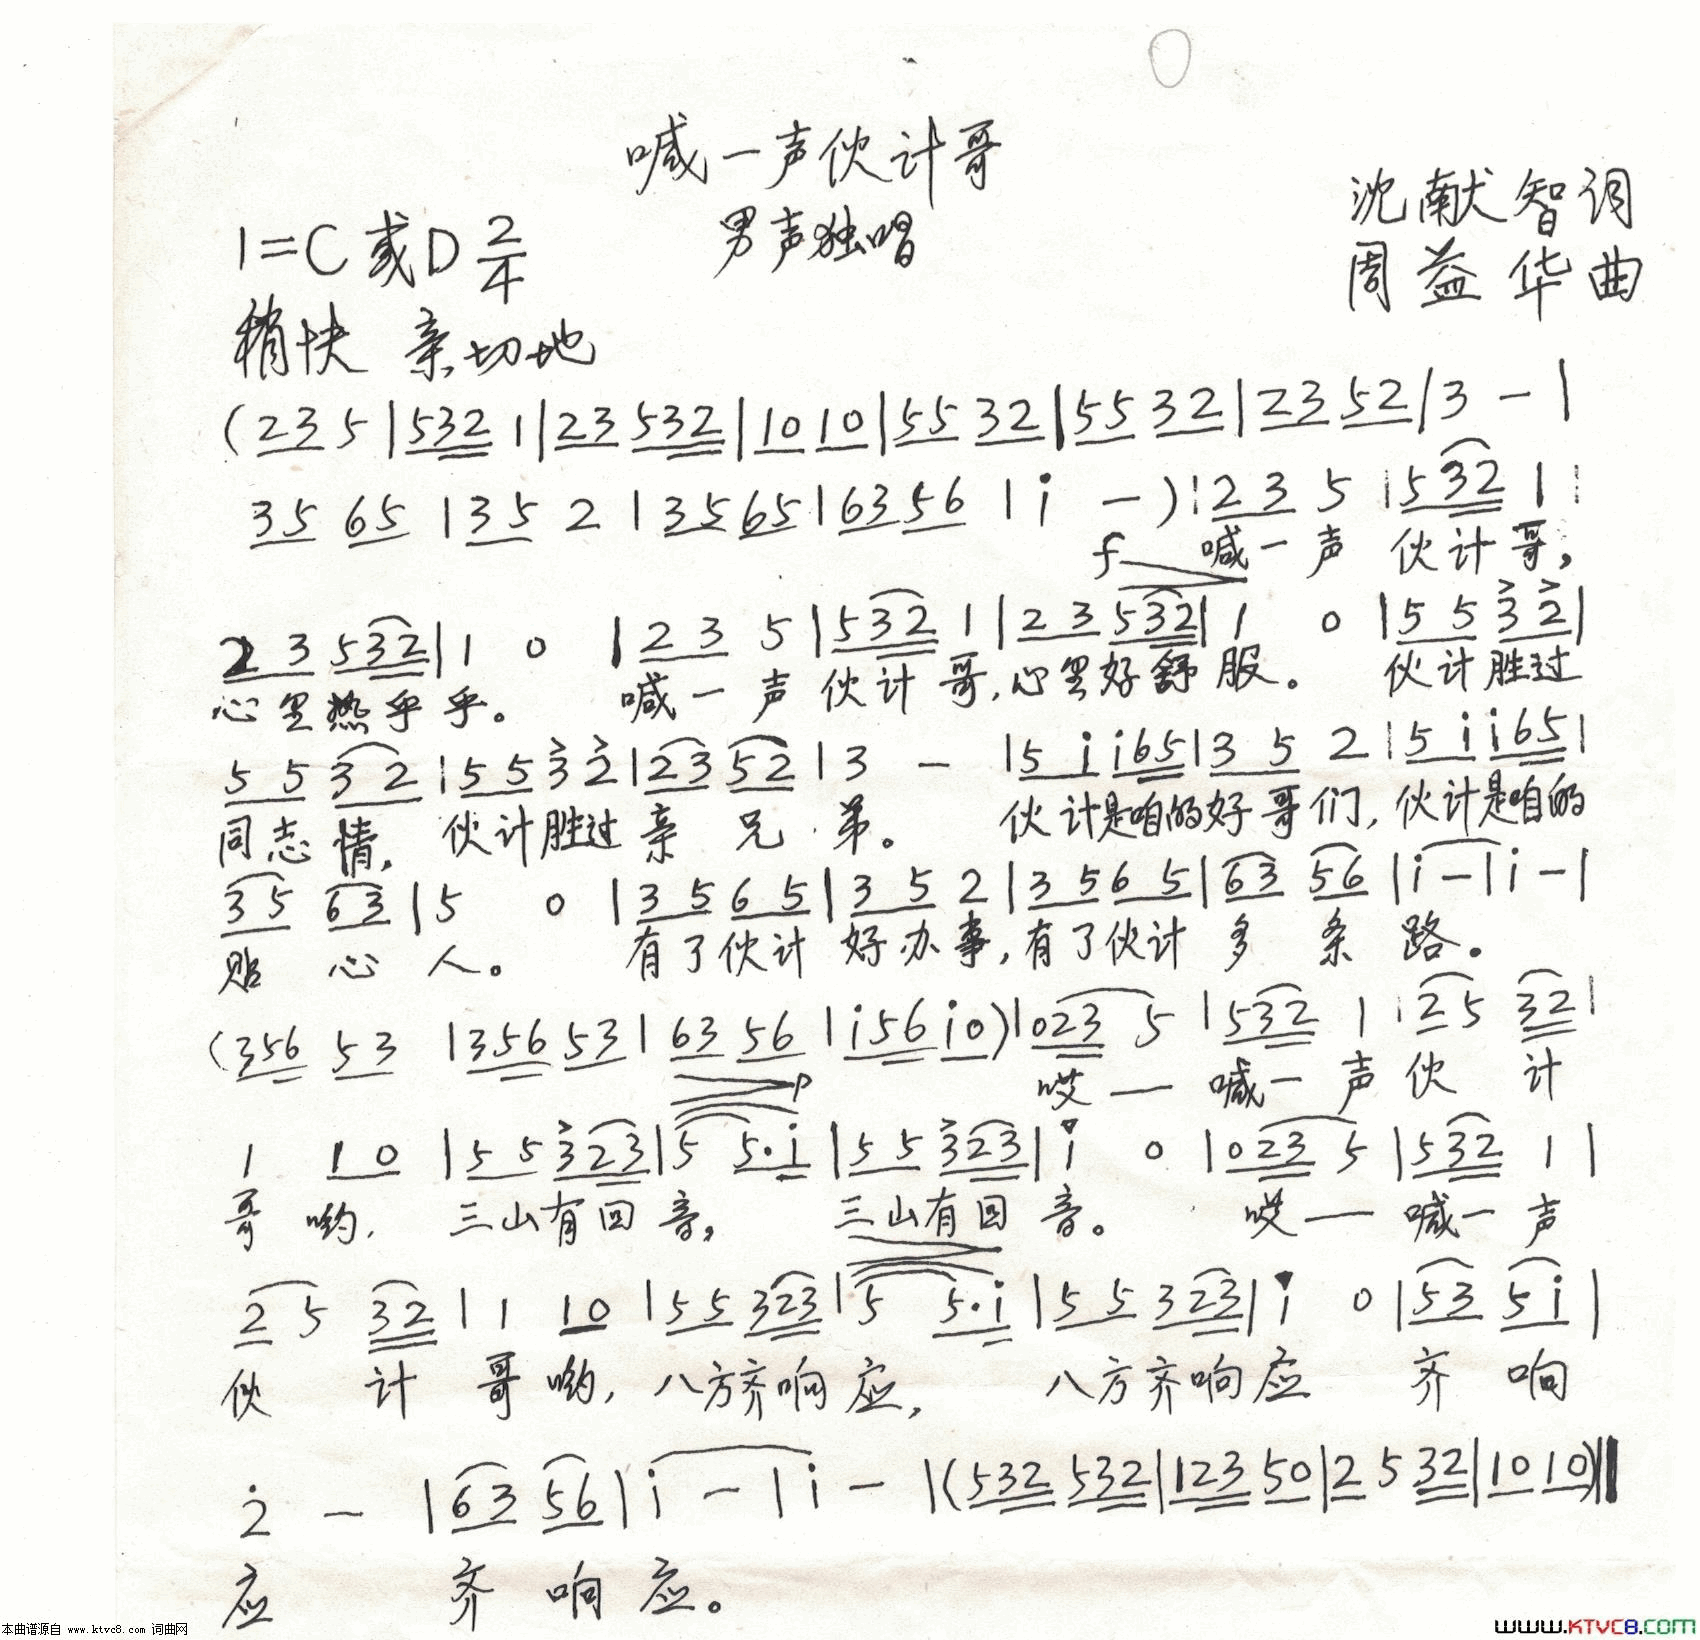 喊一声伙计哥
男声独唱
沈献智词
周益华曲
1=C或D 2/4
稍快 亲切地
(23 5|532 1|23 532|10 10|55 32|55 32|23 52|3 - |
35 65|35 2|35 65|63 56|i -)|23 5|532 1|
f 喊一声 伙计哥,
23 532|1 0|23 5|532 1|23 532|1 0|55 32|
心里热乎乎。 喊一声伙计哥,心里好舒服。 伙计胜过
55 32|55 32|23 52|3 - |5i i65|35 2|5i i65|
同志情,伙计胜过亲兄弟。 伙计是咱的好哥们,伙计是咱的
35 63|5 0|35 65|35 2|35 65|63 56|i - |i - |
贴心人。 有了伙计好办事,有了伙计多条路。
(356 53|356 53|63 56|i56 i0)|023 5|532 1|25 32|
p 哎—喊一声伙计
1 10|55 323|5 5·i|55 323|i 0|023 5|532 1|
哥哟,三山有回音,三山有回音。 哎—喊一声
25 32|1 10|55 323|5 5·i|55 323|i 0|53 5i|
伙计哥哟,八方齐响应,八方齐响应 齐响
2̇ - |63 56|i - |i - |(532 532|123 50|25 32|10 10)‖
应 齐响应。
本曲谱源自 www.ktvc8.com 词曲网
WWW.KTVC8.COM